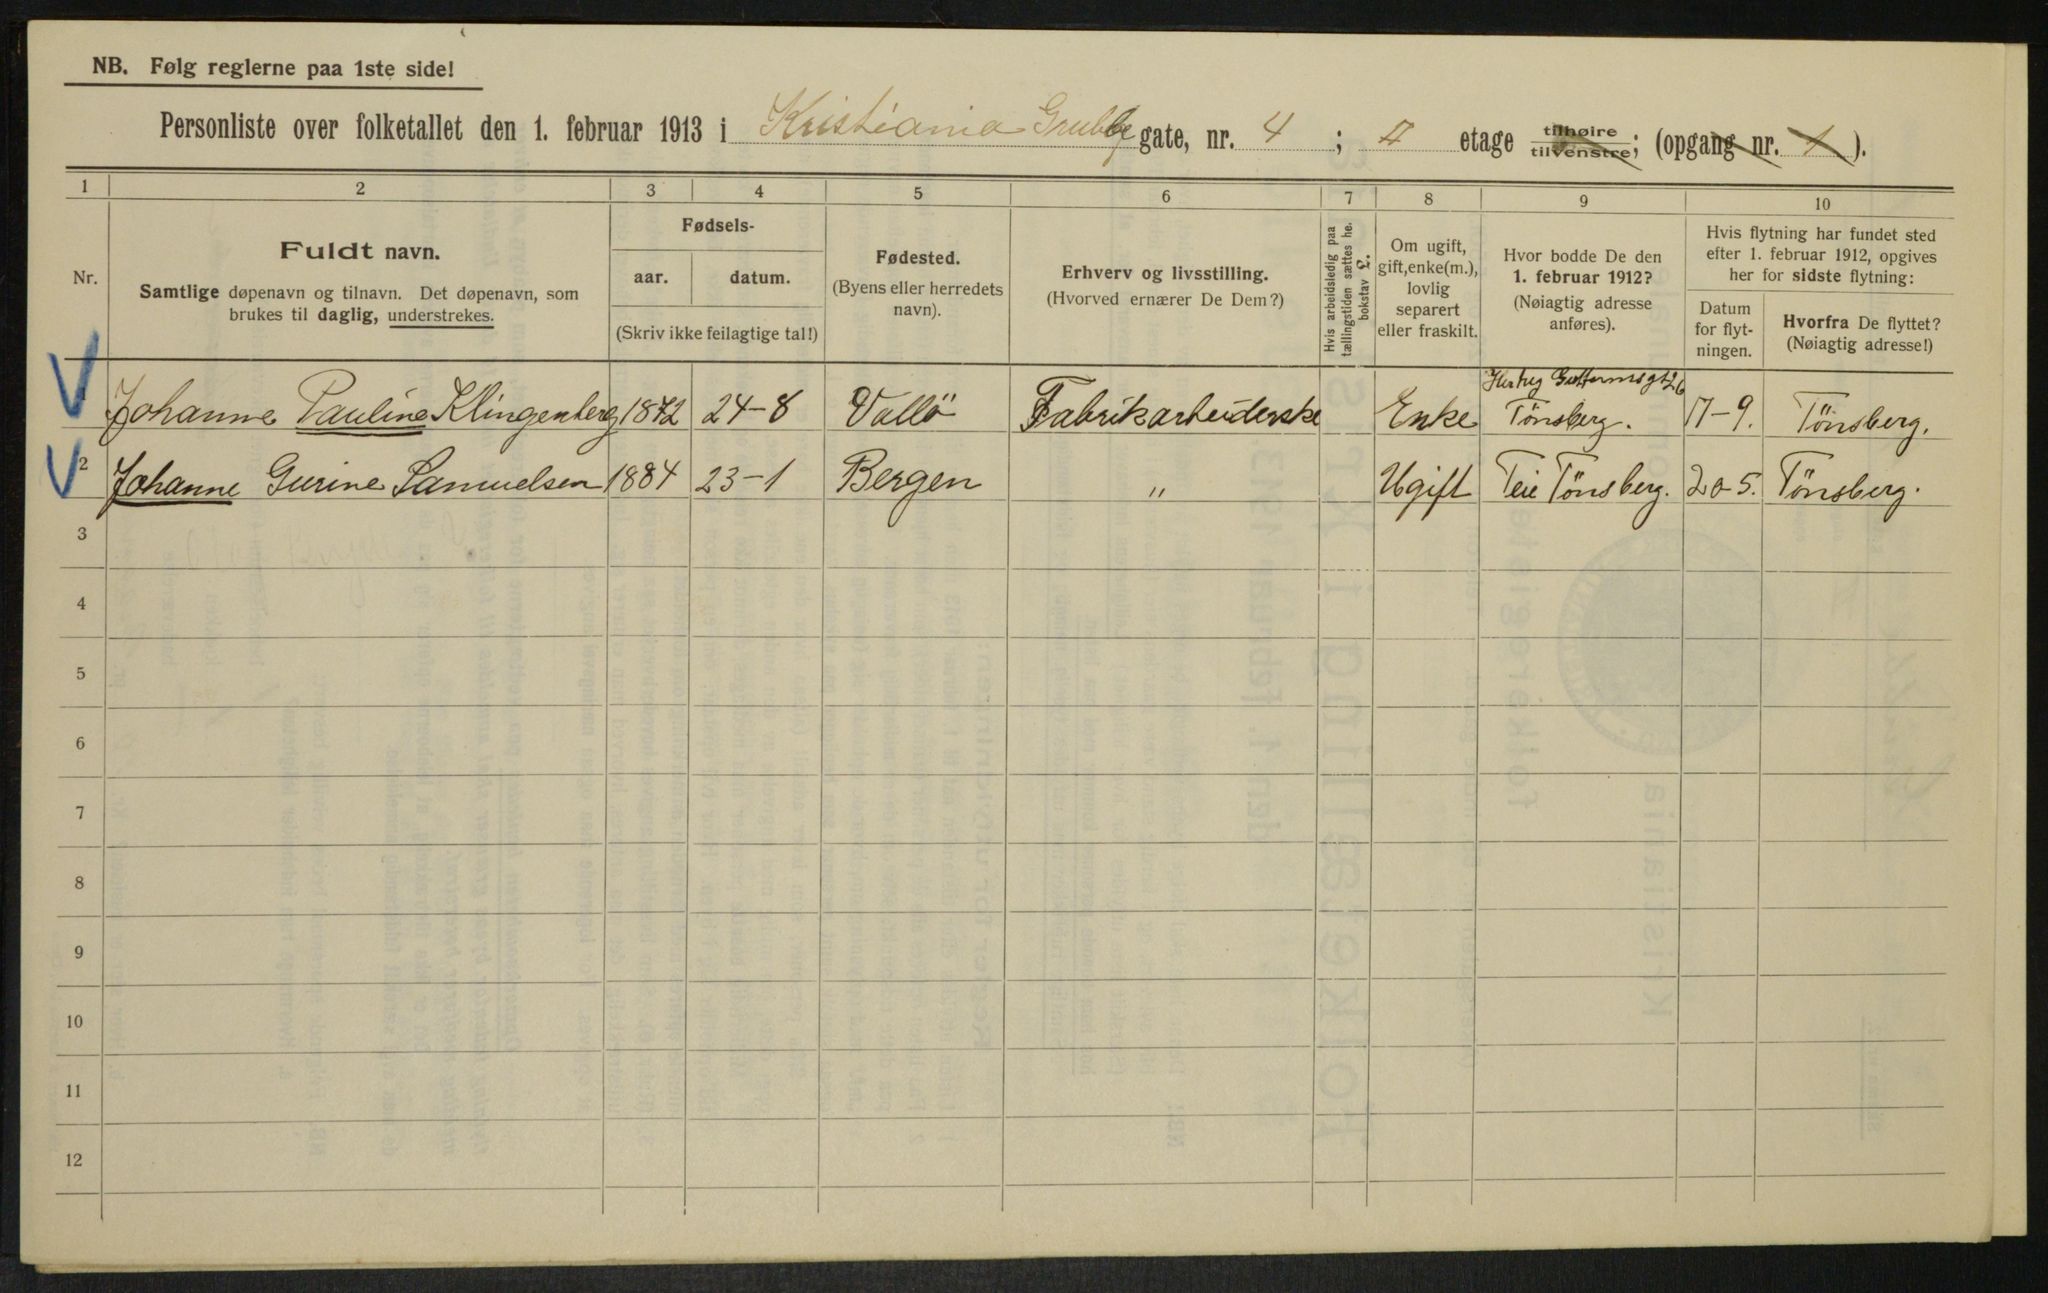 NB. Følg reglerne paa 1ste side!
Personliste over folketallet den 1. februar 1913 i Kristiania Grubbe gate, nr. 4 ; II etage tilhøire tilvenstre; (opgang nr. 1).
1 2 3 4 5 6 7 8 9 10
Nr.
Fuldt navn.
Samtlige døpenavn og tilnavn. Det døpenavn, som
brukes til daglig, understrekes.
Fødsels-
aar. datum.
(Skriv ikke feilagtige tal!)
Fødested.
(Byens eller herredets
navn).
Erhverv og livsstilling.
(Hvorved ernærer De Dem?)
Hvis arbeidsledig paa
tællingstiden sættes he.
bokstav l.
Om ugift,
gift, enke(m.),
lovlig
separert
eller fraskilt.
Hvor bodde De den
1. februar 1912?
(Nøiagtig adresse
anføres).
Hvis flytning har fundet sted
efter 1. februar 1912, opgives
her for sidste flytning:
Datum
for flyt-
ningen.
Hvorfra De flyttet?
(Nøiagtig adresse!)
1 Johanne Pauline Klingenberg 1872 24-8 Vallö Fabrikarbeiderske Enke Hertug Guttormsgt 26 Tönsberg. 17-9. Tönsberg.
2 Johanne Gurine Samuelsen 1884 23-1 Bergen " Ugift Teie Tönsberg. 20-5. Tönsberg.
3
4
5
6
7
8
9
10
11
12